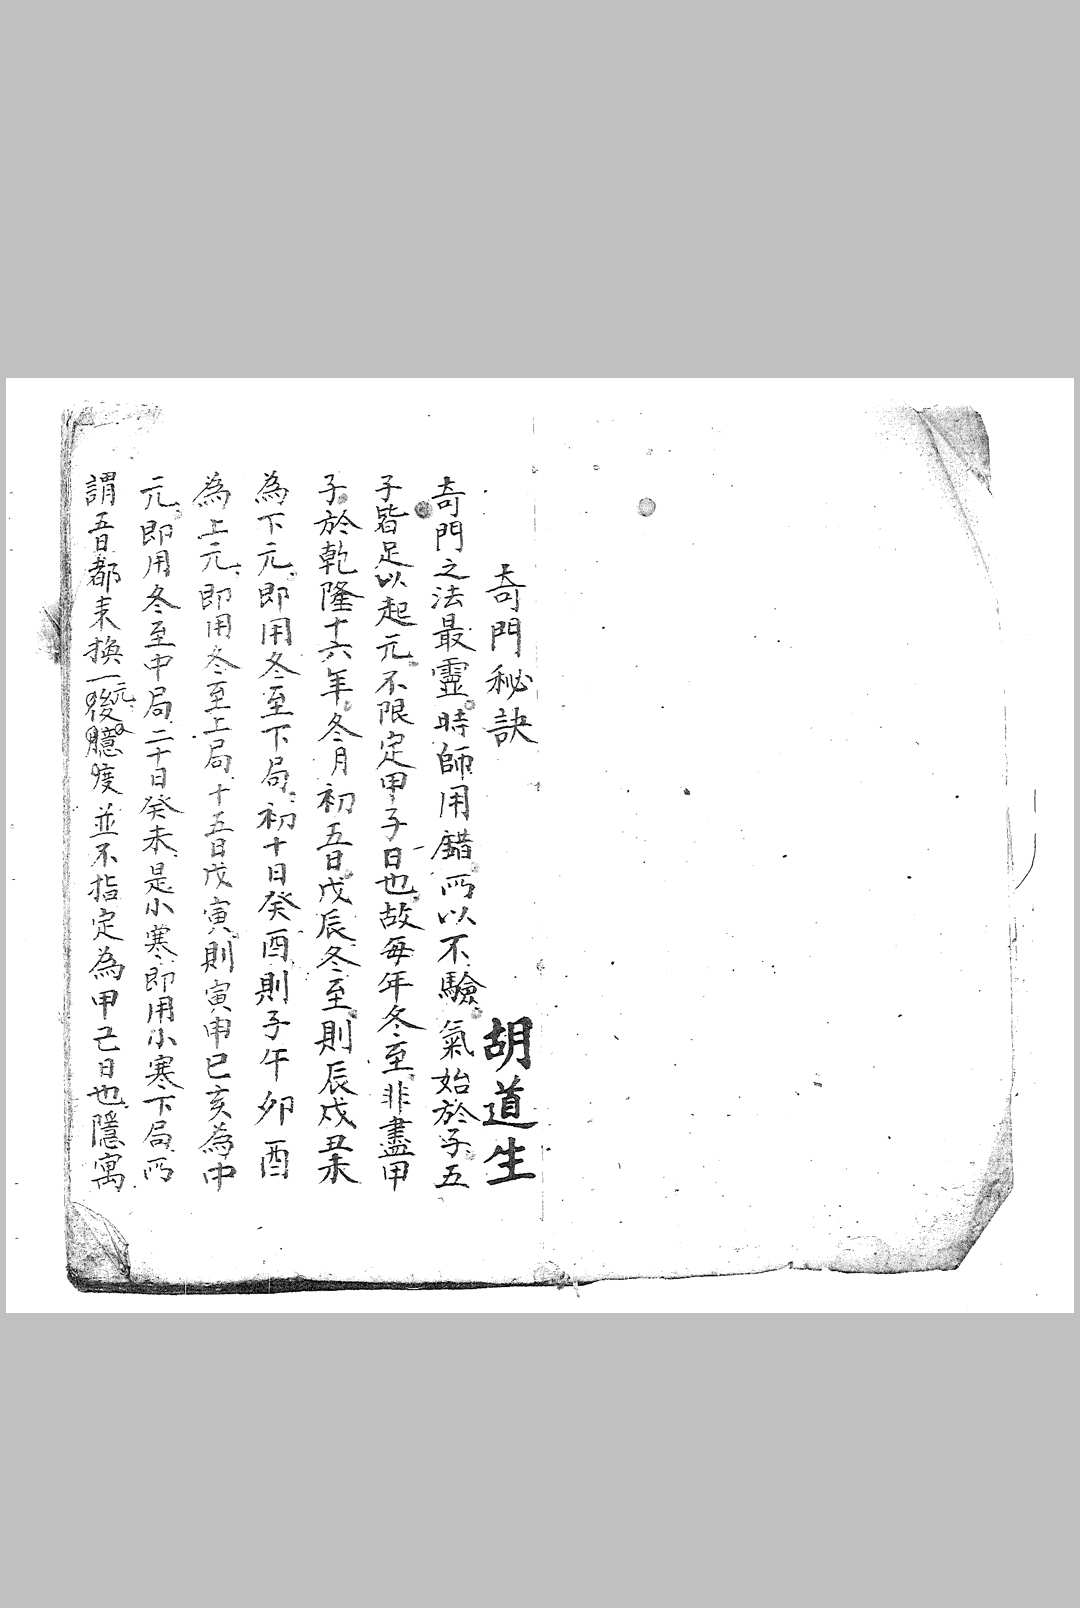 奇門秘訣 胡道生
奇門之法最靈時師用錯所以不驗氣始於子五
子皆足以起元不限定甲子日也故每年冬至非盡甲
子於乾隆十六年冬月初五日戊辰冬至則辰戌丑未
為下元即用冬至下局初十日癸酉則子午卯酉
為上元即用冬至上局十五日戊寅則寅申巳亥為中
元即用冬至中局二十日癸未是小寒即用小寒下局所
謂五日都来換一元後臆度並不指定為甲己日也隱寓